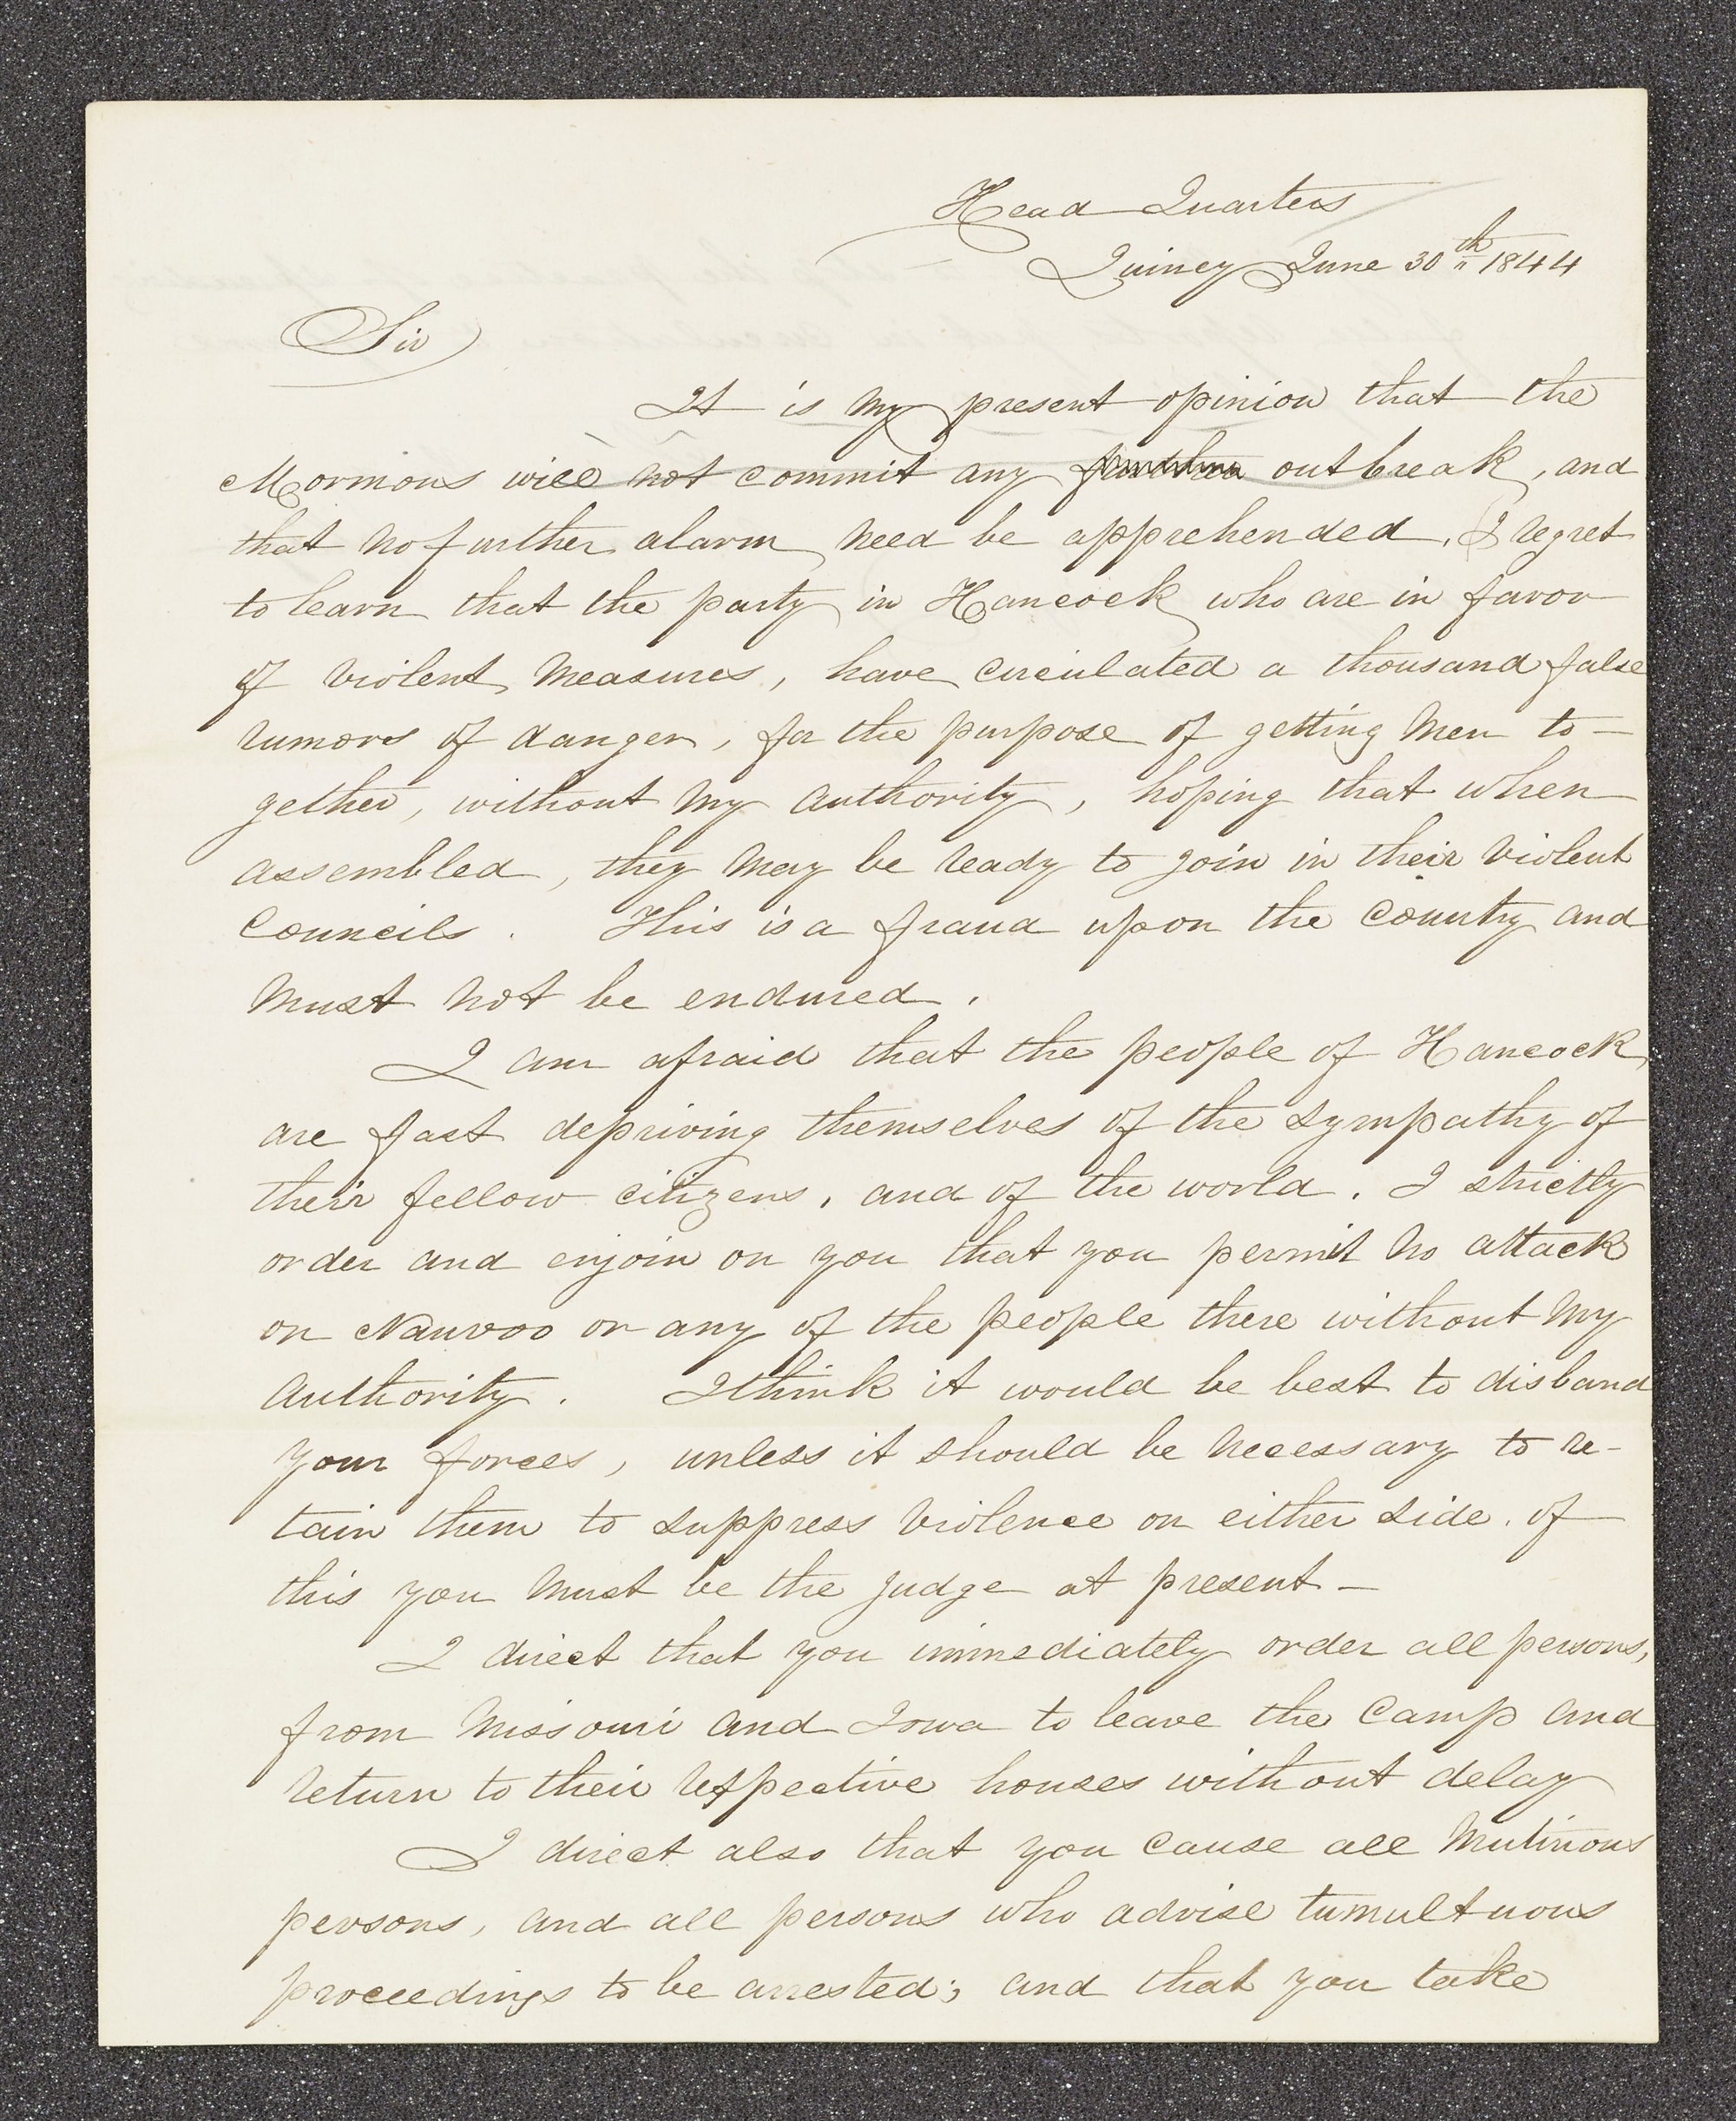 Head Quarters
Quincy June 30th 1844
Sir
It is my present opinion that the
Mormons will not commit any outbreak, and
that no further alarm need be apprehended. I regret
to learn that the party in Hancock who are in favor
of violent measures, have circulated a thousand false
rumors of danger, for the purpose of getting men to-
gether, without my authority, hoping that when
assembled, they may be ready to join in their violent
Councils. This is a fraud upon the Country and
must not be endured.
I am afraid that the people of Hancock,
are fast depriving themselves of the sympathy of
their fellow citizens, and of the world. I strictly
order and enjoin on you that you permit no attack
on Nauvoo or any of the people there without my
authority. I think it would be best to disband
your forces, unless it should be necessary to re-
tain them to suppress violence on either side. of
this you must be the judge at present-
I direct that you immediately order all persons,
from Missouri and Iowa to leave the Camp and
return to their respective houses without delay
I direct also that you cause all mutinous
persons, and all persons who advise tumultuous
proceedings to be arrested; and that you take